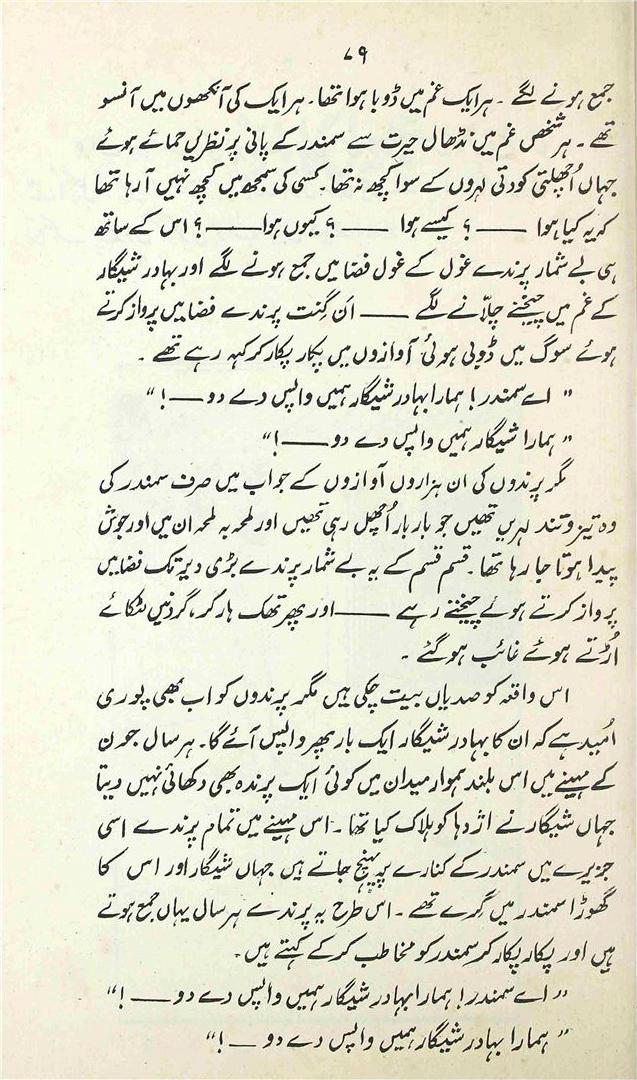 ۷۹
جمع ہونے لگے ۔ ہر ایک غم میں ڈوبا ہوا تھا۔ ہر ایک کی آنکھوں میں آنسو
تھے ۔ ہر شخص غم میں نڈھال حیرت سے سمندر کے پانی پر نظریں جمائے ہوئے
جہاں اُچھلتی کودتی لہروں کے سوا کچھ نہ تھا۔ کسی کی سمجھ میں کچھ نہیں آرہا تھا
کہ یہ کیا ہوا —— ؟ کیسے ہوا —— ؟ کیوں ہوا —— ؟ اس کے ساتھ
ہی بے شمار پرندے غول کے غول فضا میں جمع ہونے لگے اور بہادر شیگار
کے غم میں چیخنے چلّانے لگے —— اَن گِنت پرندے فضا میں پرواز کرتے
ہوئے سوگ میں ڈوبی ہوئی آوازوں میں پکار پکار کر کہہ رہے تھے ۔
" اے سمندر! ہمارا بہادر شیگار ہمیں واپس دے دو —— ! "
" ہمارا شیگار ہمیں واپس دے دو —— ! "
مگر پرندوں کی ان ہزاروں آوازوں کے جواب میں صرف سمندر کی
وہ تیز و تند لہریں تھیں جو بار بار اُچھل رہی تھیں اور لمحہ بہ لمحہ ان میں اور جوش
پیدا ہوتا جا رہا تھا ۔ قسم قسم کے یہ بے شمار پرندے بڑی دیر تک فضا میں
پرواز کرتے ہوئے چیختے رہے —— اور پھر تھک ہار کر، گردنیں لٹکائے
اُڑتے ہوئے غائب ہو گئے ۔
اس واقعہ کو صدیاں بیت چکی ہیں مگر پرندوں کو اب بھی پوری
اُمید ہے کہ ان کا بہادر شیگار ایک بار پھر واپس آئے گا۔ ہر سال جون
کے مہینے میں اس بلند ہموار میدان میں کوئی ایک پرندہ بھی دکھائی نہیں دیتا
جہاں شیگار نے اژدہا کو ہلاک کیا تھا ۔ اس مہینے میں تمام پرندے اسی
جزیرے میں سمندر کے کنارے پر پہنچ جاتے ہیں جہاں شیگار اور اس کا
گھوڑا سمندر میں گرے تھے ۔ اس طرح یہ پرندے ہر سال یہاں جمع ہوتے
ہیں اور پکار پکار کر سمندر کو مخاطب کر کے کہتے ہیں۔
" اے سمندر! ہمارا بہادر شیگار ہمیں واپس دے دو —— ! "
" ہمارا بہادر شیگار ہمیں واپس دے دو — ! "